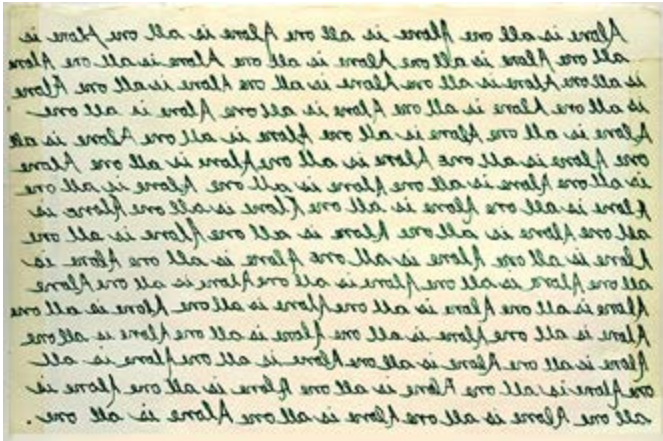 Alone is all one Alone is all one Alone is all one Alone is
all one Alone is all one Alone is all one Alone is all one Alone
is all one Alone is all one Alone is all one Alone is all one Alone
is all one Alone is all one Alone is all one Alone is all one
Alone is all one Alone is all one Alone is all one Alone is all
one Alone is all one Alone is all one Alone is all one Alone
is all one Alone is all one Alone is all one Alone is all one
Alone is all one Alone is all one Alone is all one Alone is
all one Alone is all one Alone is all one Alone is all one
Alone is all one Alone is all one Alone is all one Alone is
all one Alone is all one Alone is all one Alone is all one
Alone is all one Alone is all one Alone is all one Alone is all one
Alone is all one Alone is all one Alone is all one Alone is all one
Alone is all one Alone is all one Alone is all one Alone is all
one Alone is all one Alone is all one Alone is all one Alone is
all one Alone is all one Alone is all one Alone is all one.